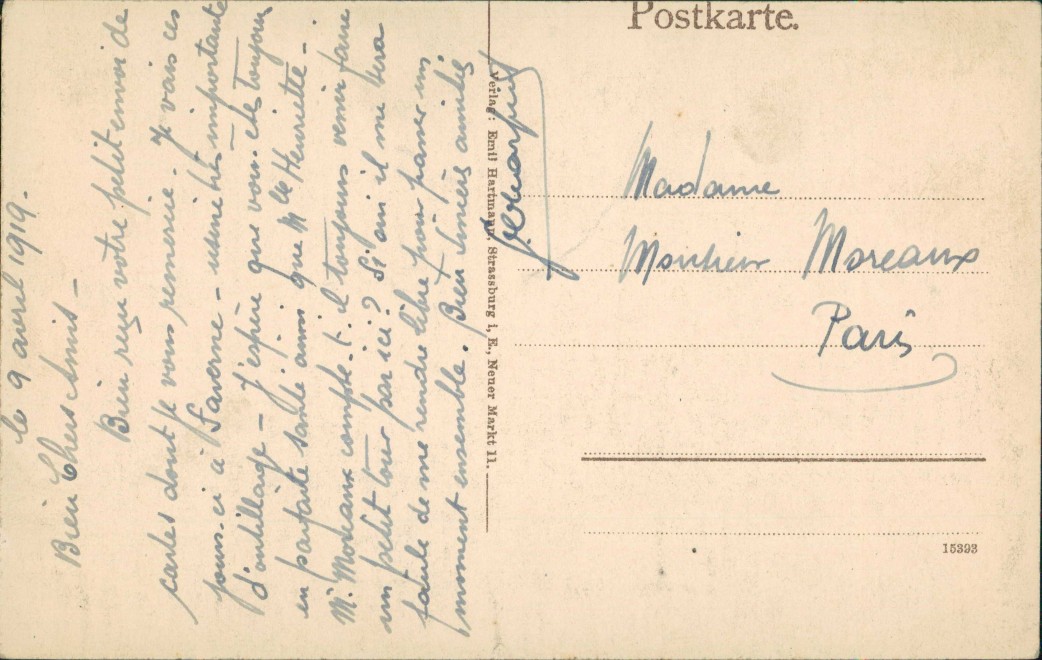 le 9 avril 1919.
Bien Chers Amis -
Bien reçu votre petit envoi de
cartes dont je vous remercie. Je vais ces
jours-ci à Saverne - usine très importante
d'outillage - J'espère que vous êtes toujours
en parfaite santé ainsi que Mlle Henriette -
Mr Moreaux compte-t-il toujours venir faire
un petit tour par ici? Si oui il me sera
facile de me rendre libre pour passer un
moment ensemble. Bien Sincères amitiés
Postkarte.
Verlag: Emil Hartmann, Strassburg i. E., Neuer Markt 11.
Madame
Monsieur Moreaux
Paris
15393